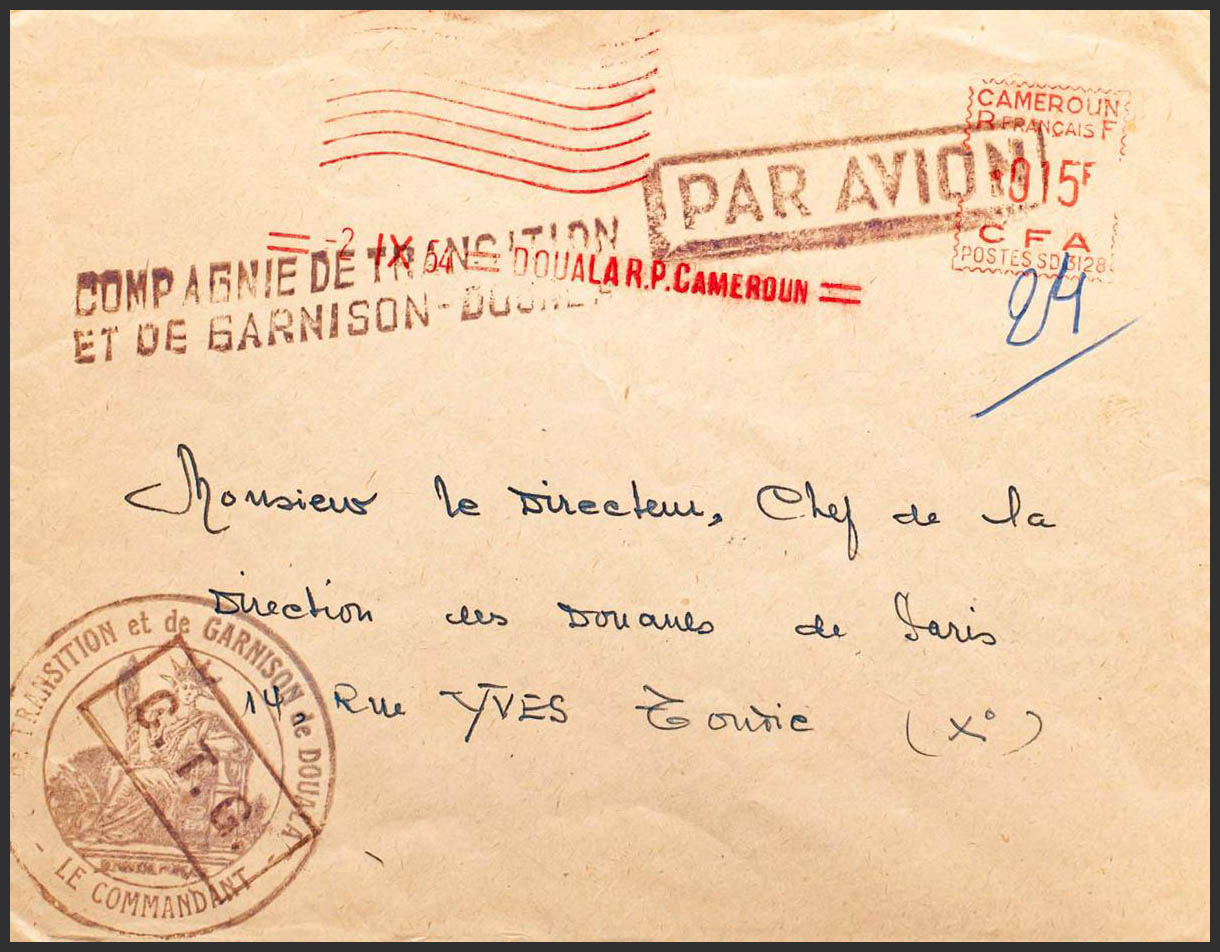 CAMEROUN
R FRANÇAIS F
015F
CFA
POSTES SD 3128
PAR AVION
-2 IX 54 DOUALA R.P. CAMEROUN
COMPAGNIE DE TRANSITION
ET DE GARNISON - DOUALA
24
Monsieur le Directeur, Chef de la
Direction des Douanes de Paris
14, Rue YVES Toudic (X°)
de TRANSITION et de GARNISON de DOUALA
C.T.G.
- LE COMMANDANT -